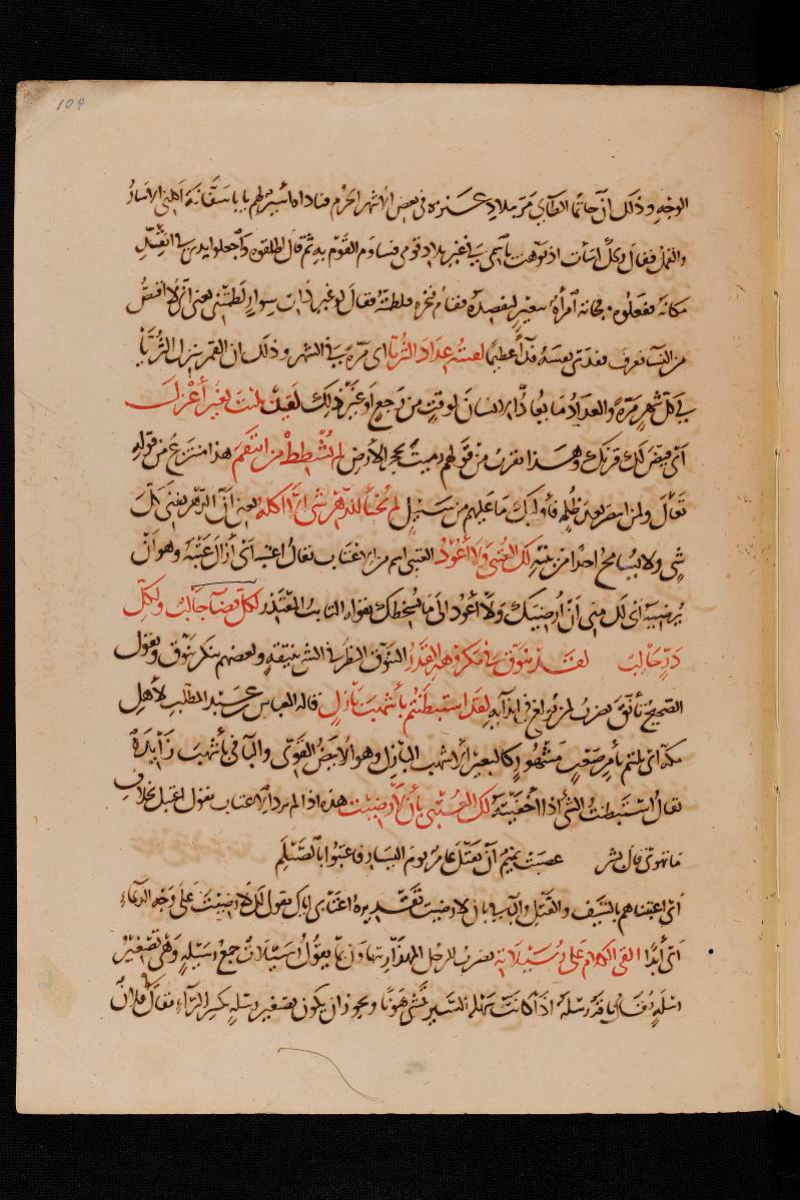 104
الوجه وذلك ان حاتما الطائي مر ببلاد عنزة في بعض الاشهر الحرم فناداه اسير لهم يا با سفانة اكلني الاسار
والقمل فقال ويلك اسأت اذ نوهت باسمي في غير بلاد قومي فساوم القوم به ثم قال اطلقوه واجعلوا يدي في القد
مكانه ففعلوا فجاءته امرأة ببعير ليفصده فقام فنحره فلطمته فقال لو غير ذات سوار لطمتني يعني اني لا اقتص
من النساء فعرف ففدى نفسه فداء عظيما لقيته عداد الثريا اي مرة في الشهر وذلك ان القمر ينزل الثريا
في كل شهر مرة والعداد ما يعاد الانسان لوقت من وجع او غير ذلك لقد بليت بغير اعزل
اي قيض لك قرنك وهذا يقرب من قولهم رميت بحجر الارض لم يشطط من انتقم هذا منتزع من قوله
تعالى ولمن انتصر بعد ظلمه فأولئك ما عليهم من سبيل لم يخبأ للدهر شئ الا اكله يعني ان الدهر يفني كل
شئ ولا يسامح احدا من بنيه لك العتبى ولا اعود العتبى اسم من الاعتاب يقال اعتبه اي ازال عتبه وهو ان
يرضيه اي لك مني ان ارضيك ولا اعود الى ما يسخطك يقوله التائب المعتذر لكل قضاء جالب ولكل
در حالب لقد تنوق في مكروهه القدر التنوق النظر في الشئ بنيقة وبعضهم ينكر تنوق ويقول
الصحيح تأنق يضرب لمن بولغ في ايذائه لقد استبطنتم بأشهب بازل قاله العباس بن عبد المطلب لأهل
مكة اي بليتم بأمر صعب مشهور كالبعير الاشهب البازل وهو الابيض القوي والباء في بأشهب زايدة
يقال استبطنت الشئ اذا اخفيته لك العتبى بأن لا رضيت هذه اذا لم يرد الاعتاب يقول اعتبك بخلاف
ما تهوى قال بشر غضبت تميم ان تقتل عامر يوم النسار فاعتبوا بالصيلم
اي اعتبناهم بالسيف والقتل والباء في بان لا رضيت تقديره اعتابي اياك بقولي لك لا رضيت على وجه الدعاء
اي ابدا القى الكلام على رسيلاته يضرب للرجل المهذار يتهاون بما يقول رسيلات جمع رسيلة وهي تصغير
رسلة يقال ناقة رسلة اذا كانت سهلة السير تمشي هونا ويجوز ان يكون تصغير رسلة بكسر الراء يقال فلان